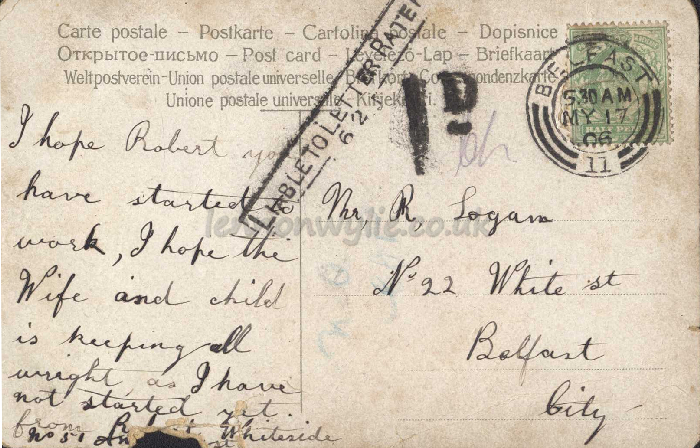 Carte postale – Postkarte – Cartolina postale – Dopisnice
Открытое-письмо – Post card – Levelező-Lap – Briefkaart
Weltpostverein-Union postale universelle
Unione postale universelle
LIABLE TO LETTER RATE
62
1D
BELFAST
5.30 AM
MY 17
06
11
I hope Robert you
have started
work, I hope the
Wife and child
is keeping all
wright, as I have
not started yet.
from Whiteside
No 51
Mr, R, Logan
No 22 White st
Belfast
City
lennonwylie.co.uk